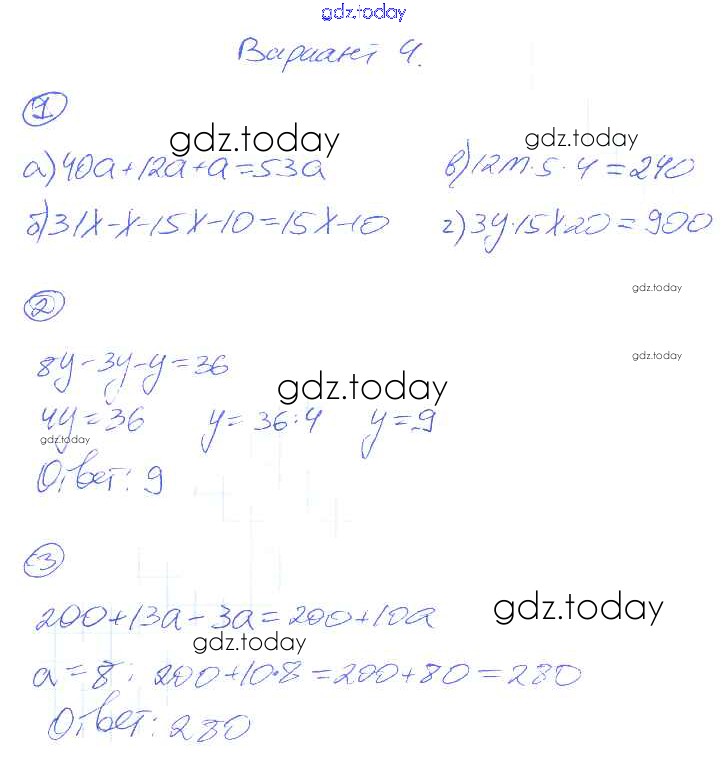 gdz.today
Вариант 4.
1
gdz.today gdz.today
а) 40a+12a+a=53a в) 12m·5·4=240
б) 31x-x-15x-10=15x-10 г) 3y·15x20=900
gdz.today
2
gdz.today
8y-3y-y=36
gdz.today
4y=36 y=36:4 y=9
gdz.today
Ответ: 9
3
gdz.today
200+13a-3a=200+10a
gdz.today
a=8; 200+10·8=200+80=280
Ответ: 280